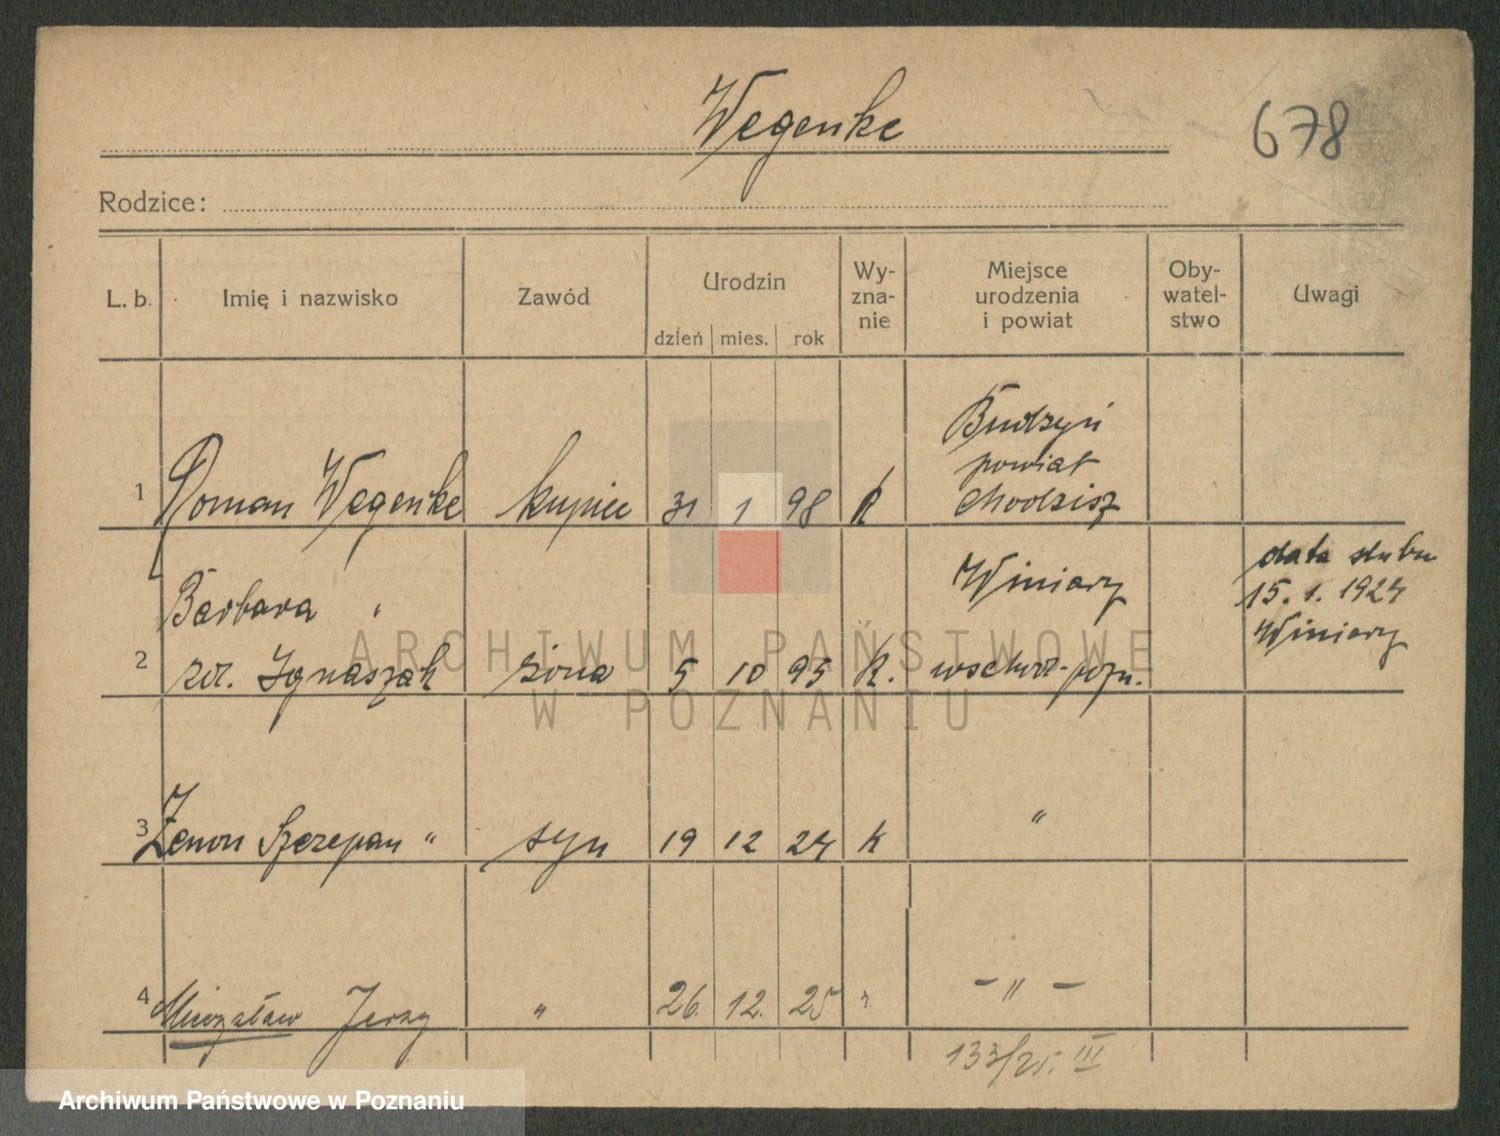 Wegenke
678
Rodzice:
L. b. Imię i nazwisko Zawód Urodzin dzień mies. rok Wy-zna-nie Miejsce urodzenia i powiat Oby-watel-stwo Uwagi
Budzyń
powiat
1 Roman Wegenke kupiec 31 1 98 K Chodzisz
Barbara " Winiary data ślubu
15. 1. 1924
2 zd. Ignaszak żona 5 10 95 K. wschod-pozn. Winiary
3 Zenon Szczepan " syn 19 12 24 k "
4 Mieczysław Jerzy " 26. 12. 25 " - " -
133/25. III
ARCHIWUM PAŃSTWOWE
W POZNANIU
Archiwum Państwowe w Poznaniu